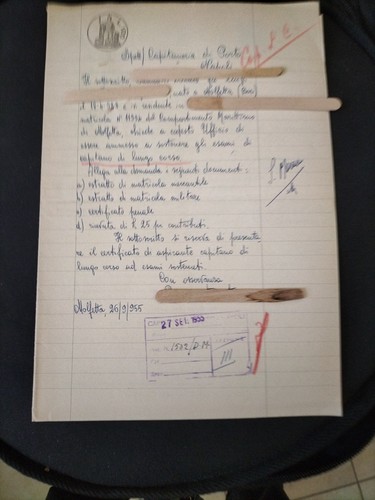 Cap. L. C.
Spett/ Capitaneria di Porto
Napoli
Il sottoscritto
nato a Molfetta (Bari)
il e residente in
matricola n° del Compartimento Marittimo
di Molfetta, chiede a codesto Ufficio di
essere ammesso a sostenere gli esami di
capitano di lungo corso.
Allega alla domanda i seguenti documenti:
a) estratto di matricola mercantile
b) estratto di matricola militare
c) certificato penale
d) ricevuta di £ 25 per contributi.
Il sottoscritto si riserva di presenta
re il certificato di aspirante capitano di
lungo corso ad esami sostenuti.
Con osservanza
Molfetta 26/9/955
27 SET. 1955